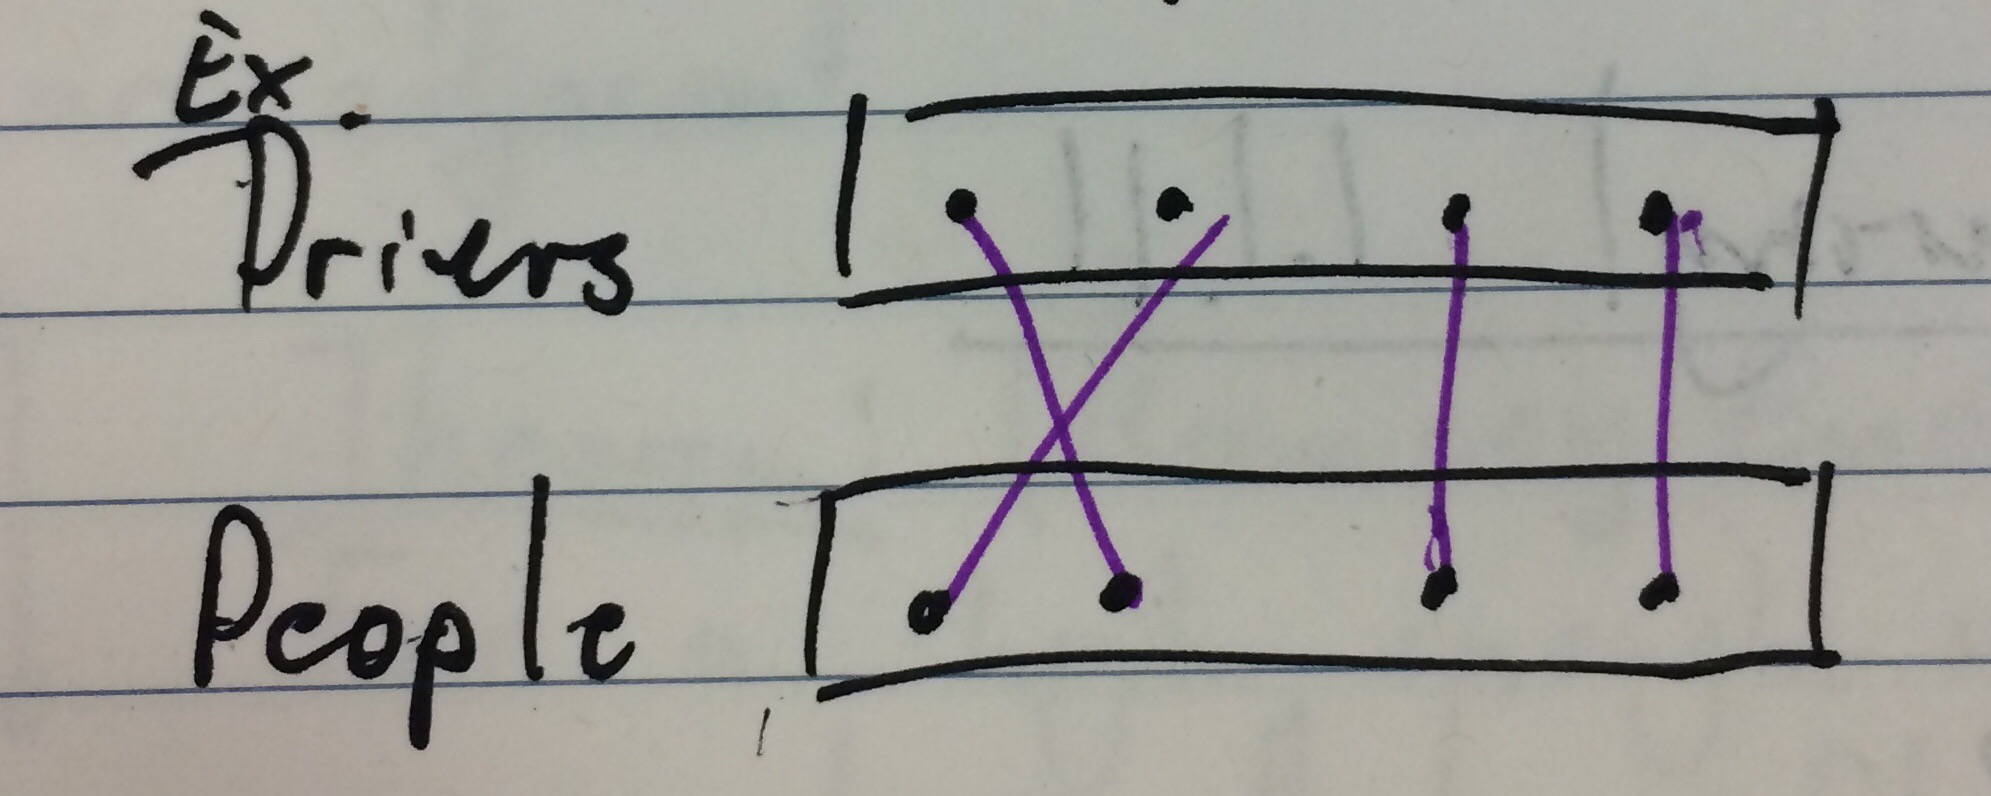 Ex.
Drivers
People